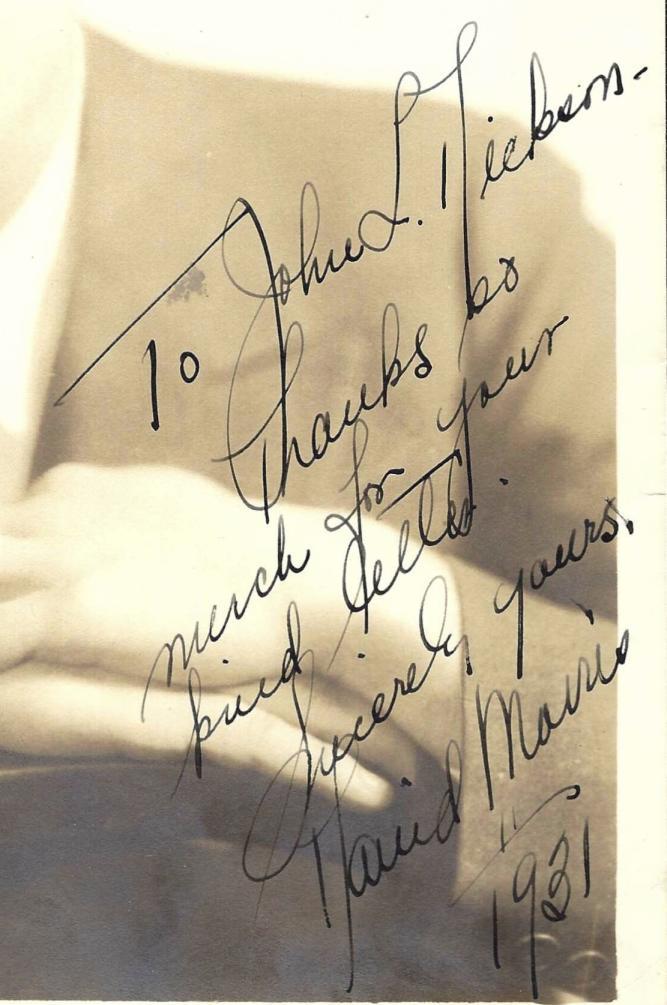 To John L. Dickson-
Thanks so
much for your
kind letter.
Sincerely yours.
David Morris
1931